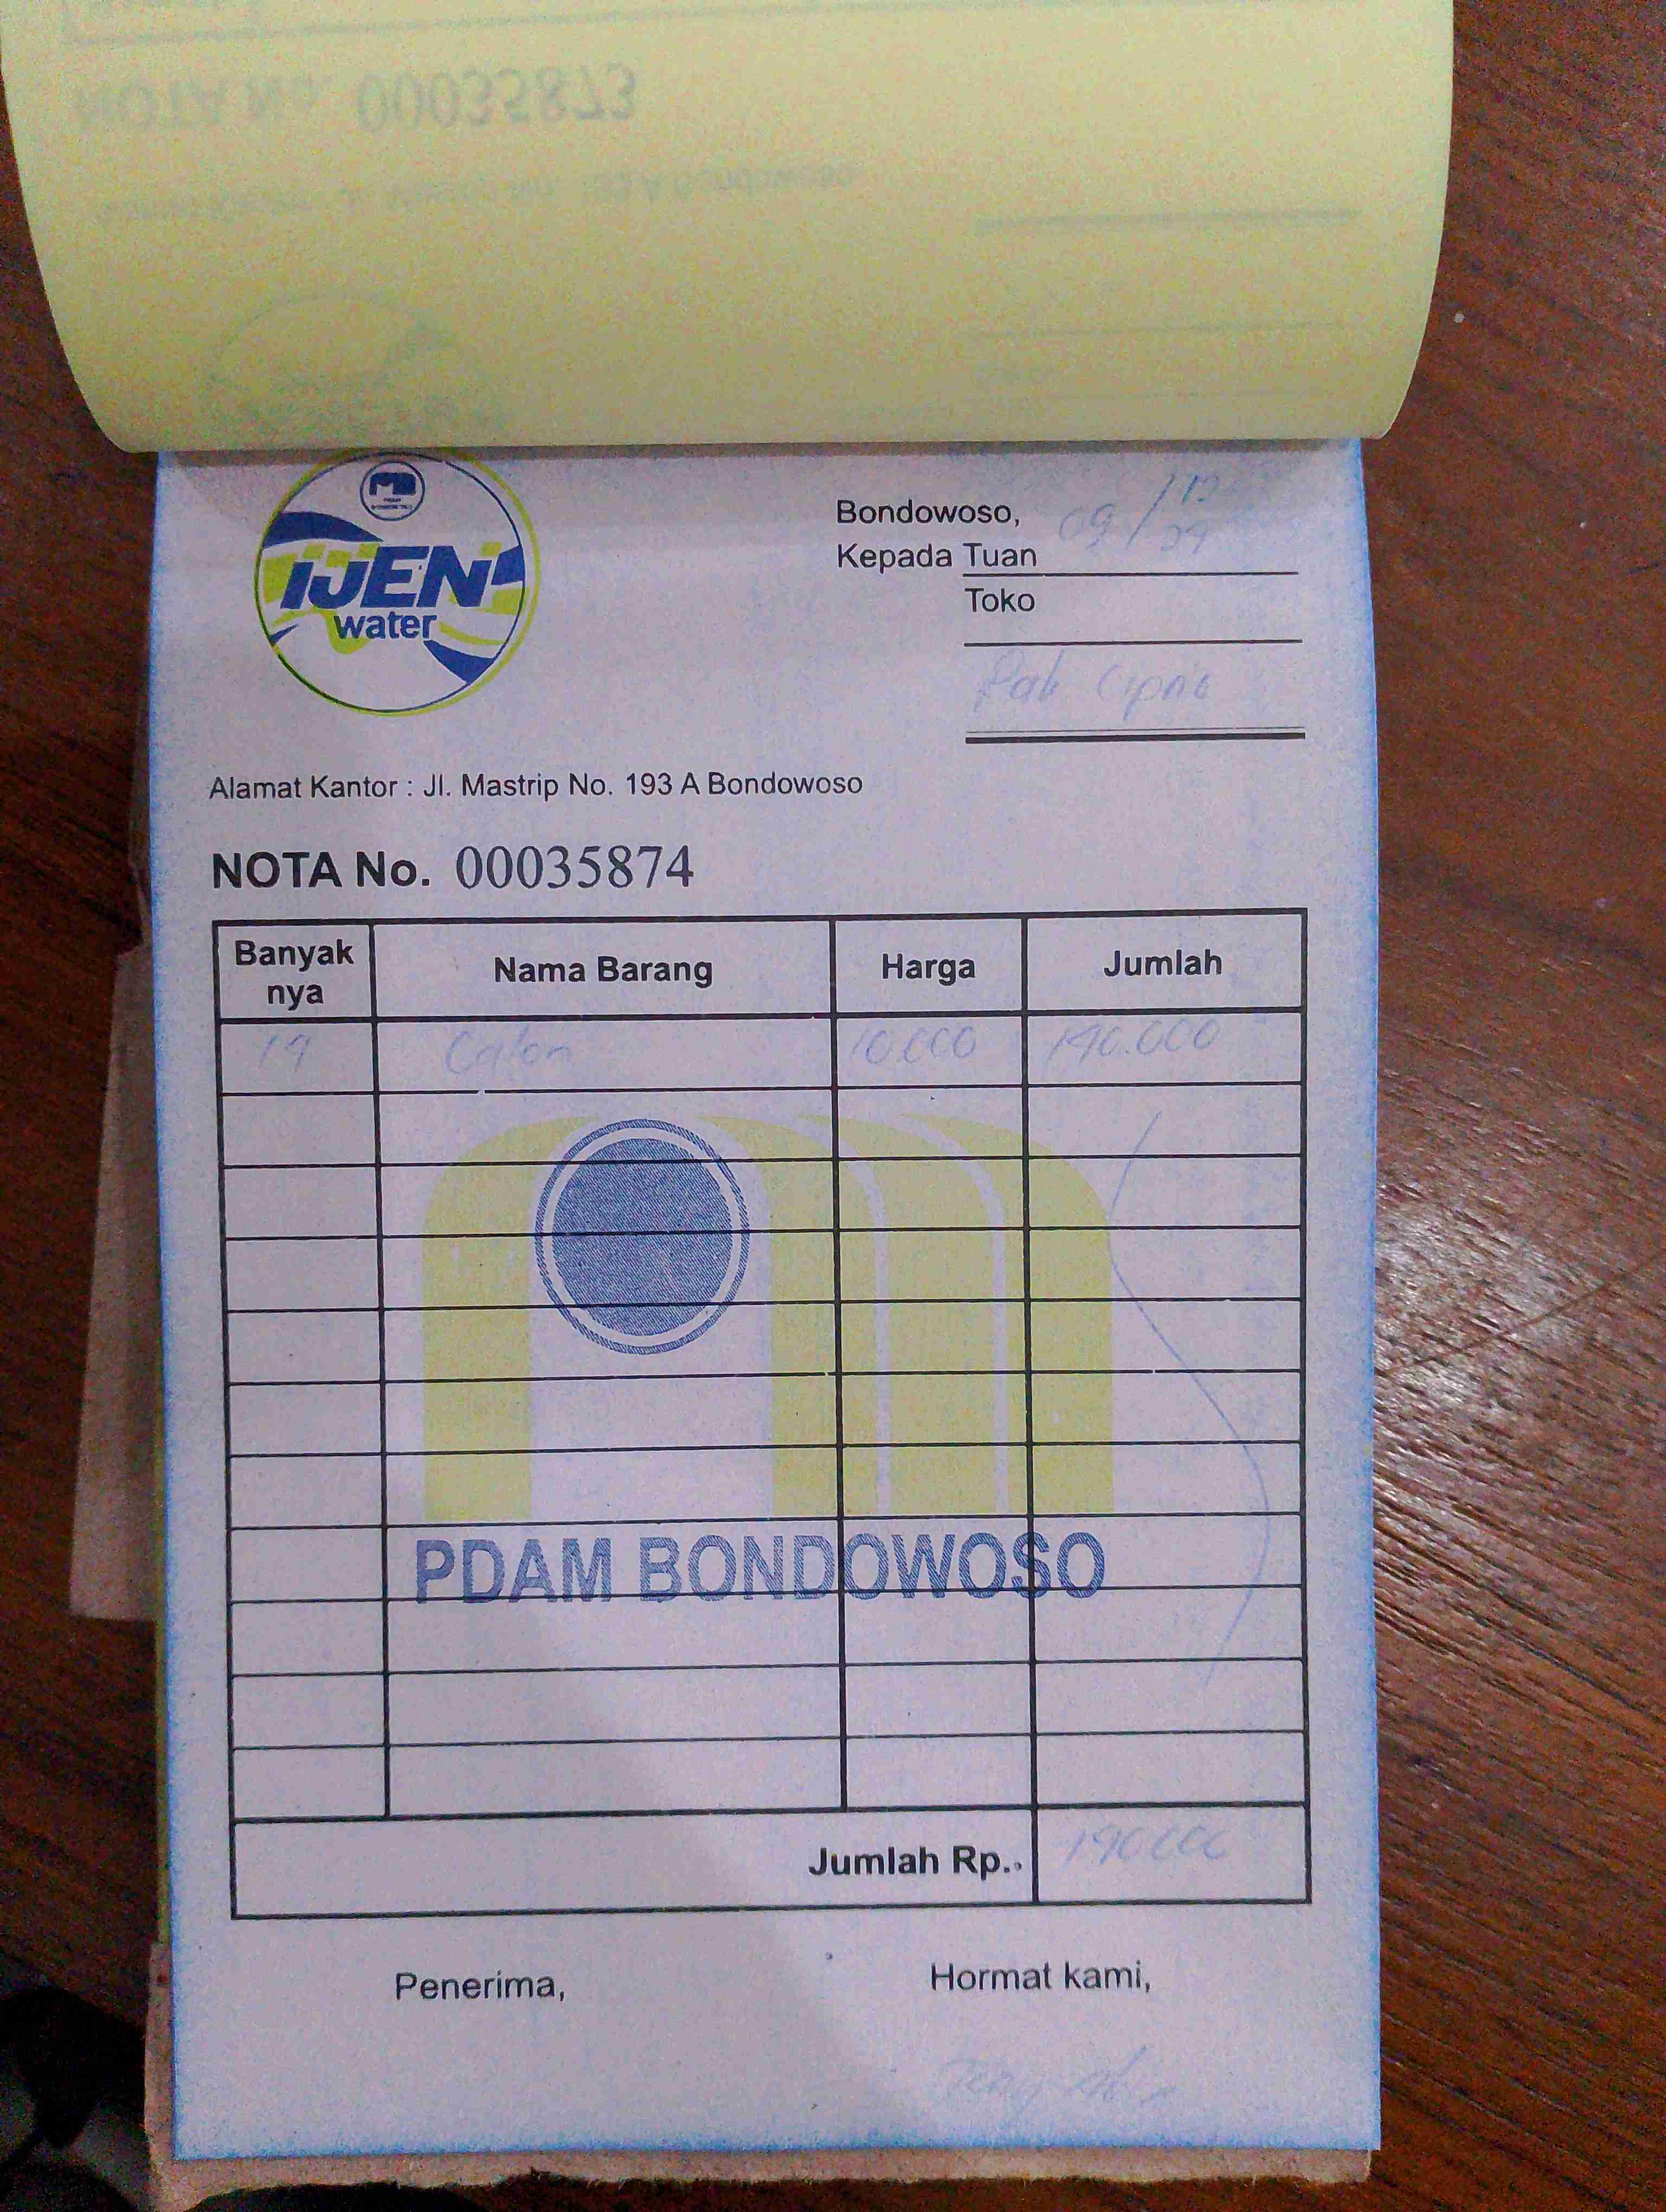 NOTA No. 00035873
IJEN
water
Bondowoso, 09/12
24
Kepada Tuan
Toko
Pak
Alamat Kantor : Jl. Mastrip No. 193 A Bondowoso
NOTA No. 00035874
Banyak nya Nama Barang Harga Jumlah
19 Galon 10.000 190.000
PDAM BONDOWOSO
Jumlah Rp. 190.000
Penerima, Hormat kami,